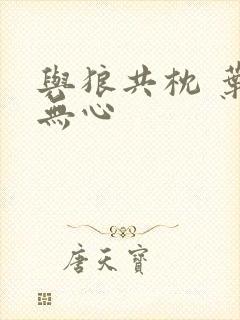 與狼共枕 葉
無心
唐天寶